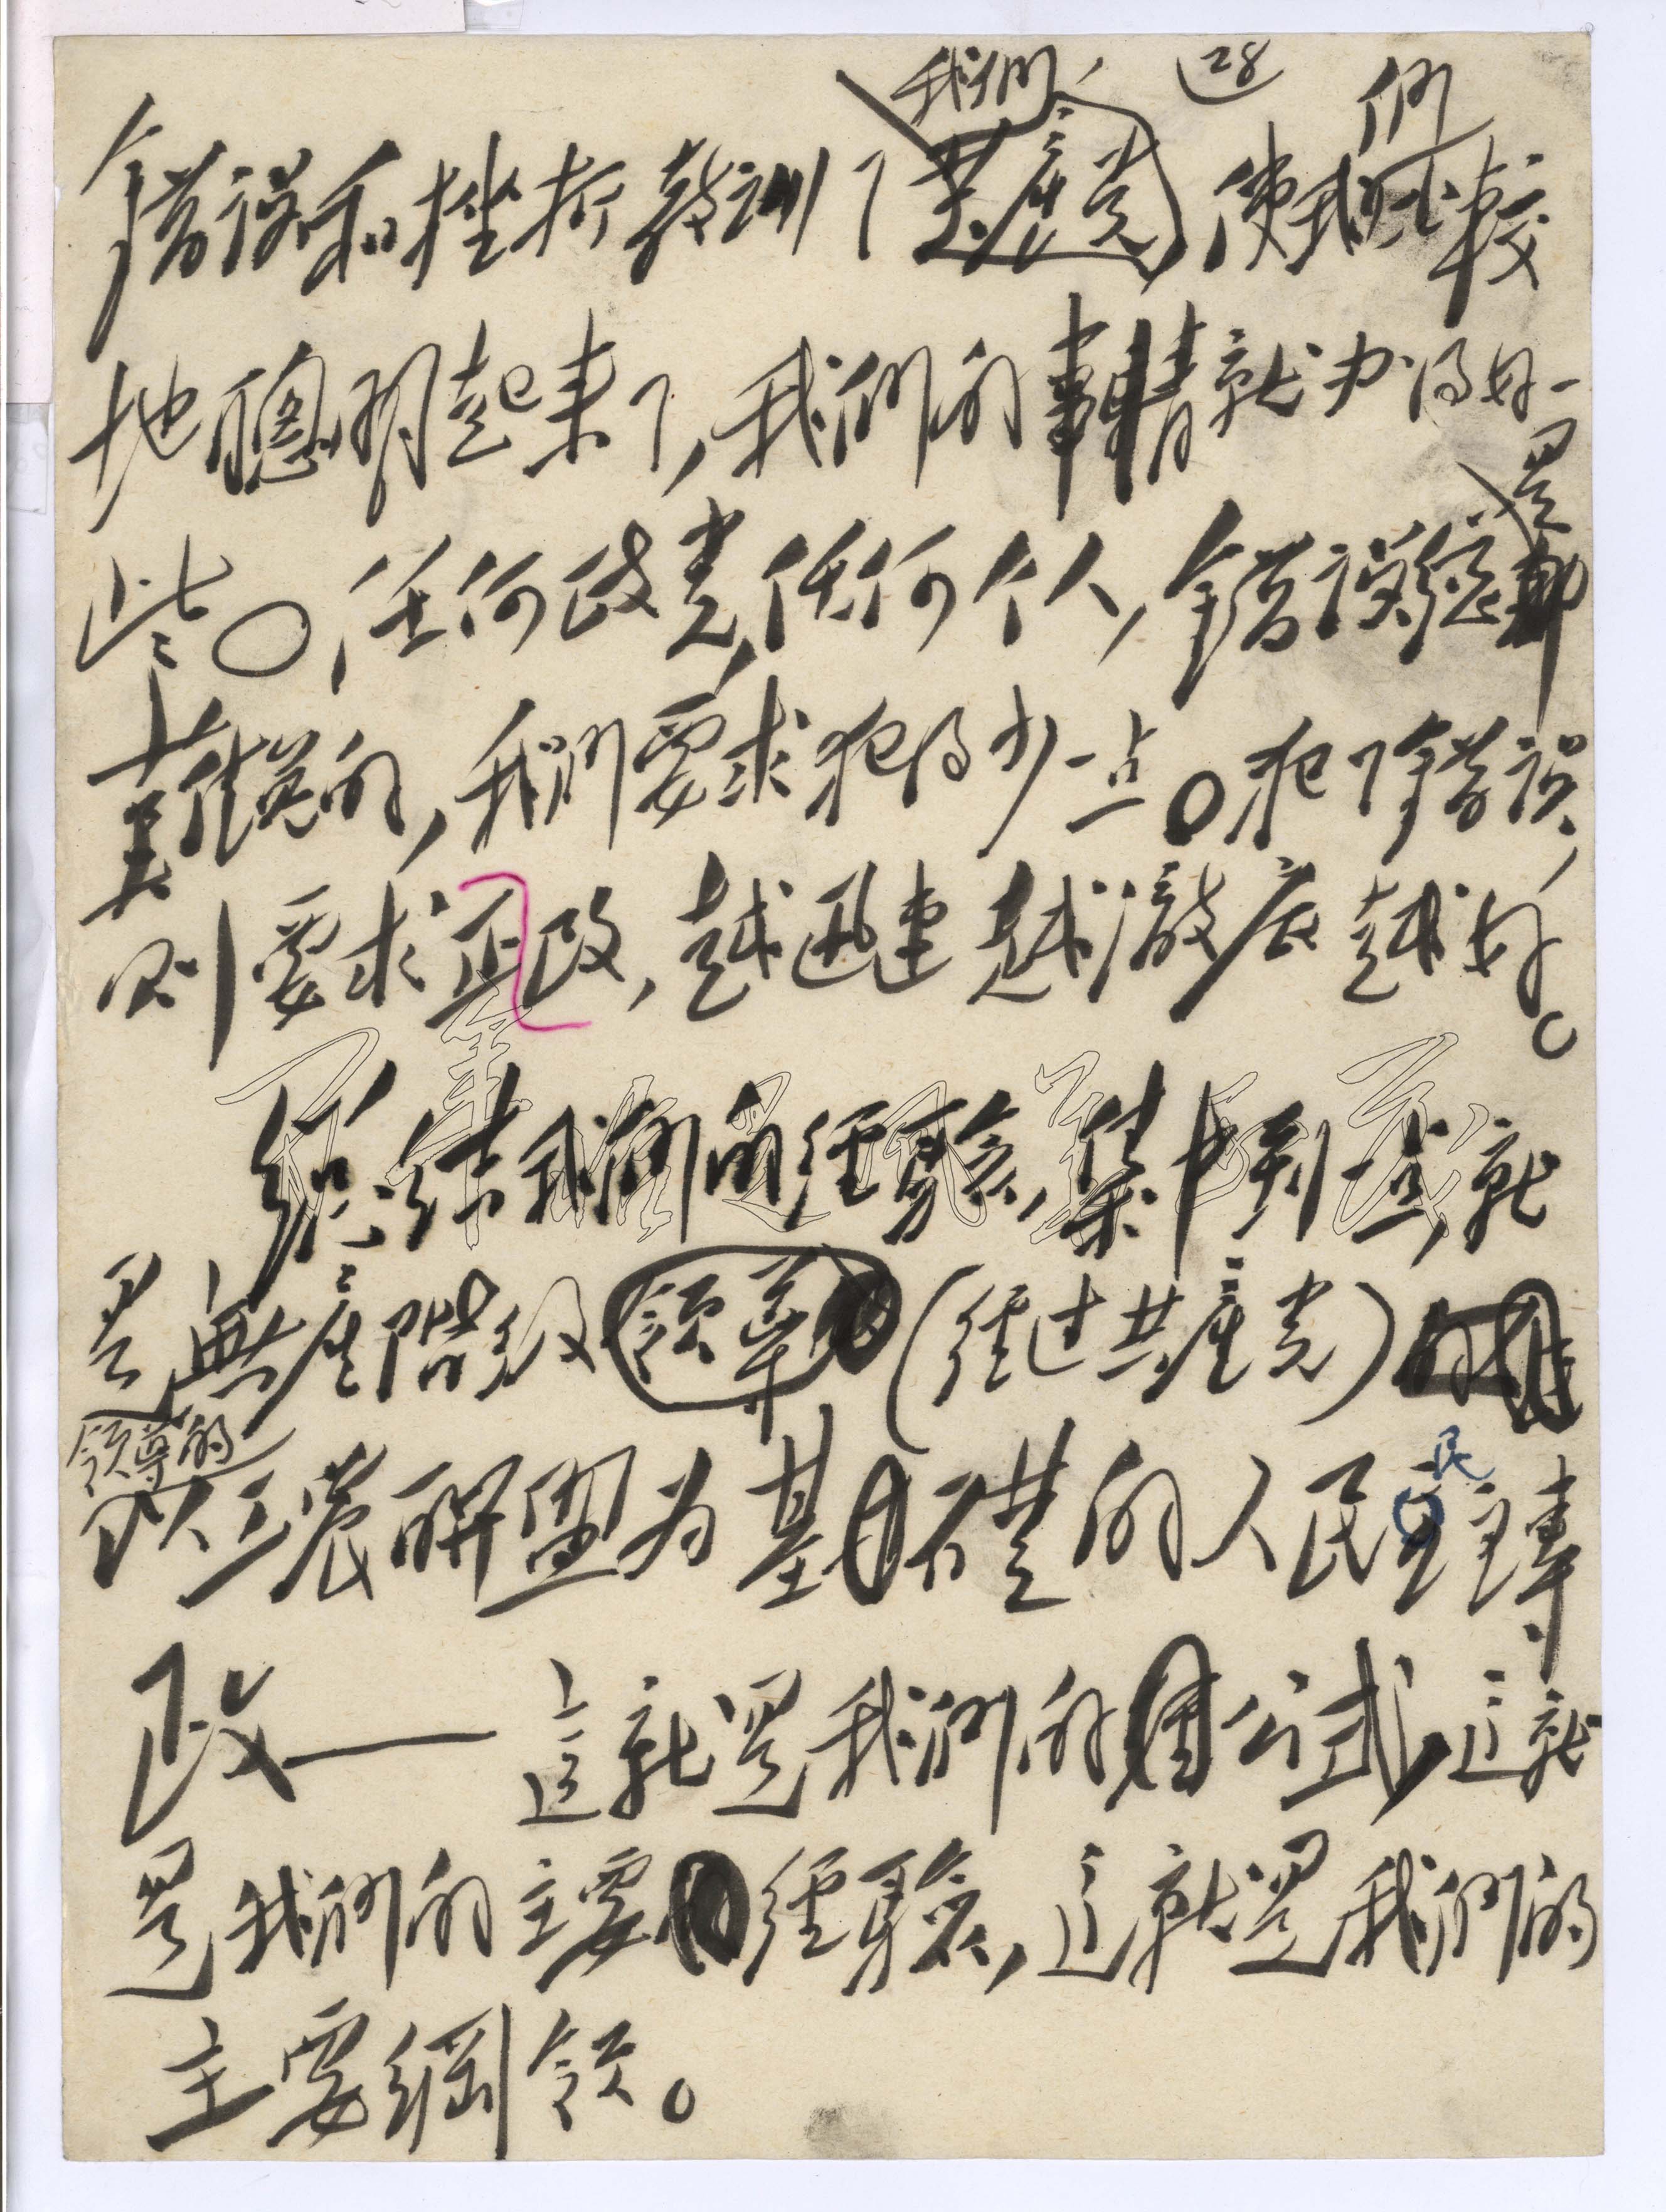 我們 28 們
錯误和挫折教训了共產党,使我比較
地聰明起来了,我們的事情就办得好一
是
些。任何政党,任何个人,錯误總
难免的,我們要求犯得少一点。犯了錯误,
则要求正改,越迅速越澈底越好。
總结我們的經驗,集中到一点,就
是無產階级領導(經过共產党)的
領導的 民
以工農联盟为基礎的人民主專
政——這就是我們的公式,這就
是我們的主要經驗,這就是我們的
主要綱領。